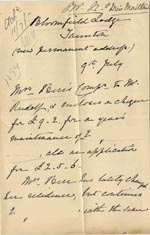 Bloomfield Lodge
Taunton
(new permanent address)
9th July
Mrs. Compts. to Mr.
Rudolf, & encloses a cheque
for £9-2- for a years
maintenance of
, also an application
for £2-5-6.
Mrs. has lately changed
her residence, but continues
with the same